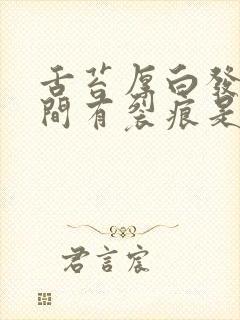 舌苔厚白發
間有裂痕是
君言宸